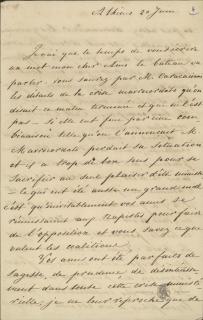 Athènes 20 Juin
Je n'ai que le temps de vous écrire
un mot mon cher Ami le bateau va
partir. Vous saurez par M.
les détails de la crise ministérielle qu'on
disait ce matin terminée et qui ne l'est
pas – Si elle eut fini par une com
binaison telle qu'on l'annonçait M.
perdait sa situation
et il a trop de bon sens pour se
sacrifier au seul plaisir d'être ministre
– ce qui eut été aussi un grand mal
c'est qu'inévitablement vos amis se
réunissaient aux pour faire
de l'opposition et vous savez ce que
valent les coalitions.
Vos amis ont été parfaits de
sagesse de prudence de désintéresse
ment dans toute cette crise ministé
rielle, je ne leur reproche que de